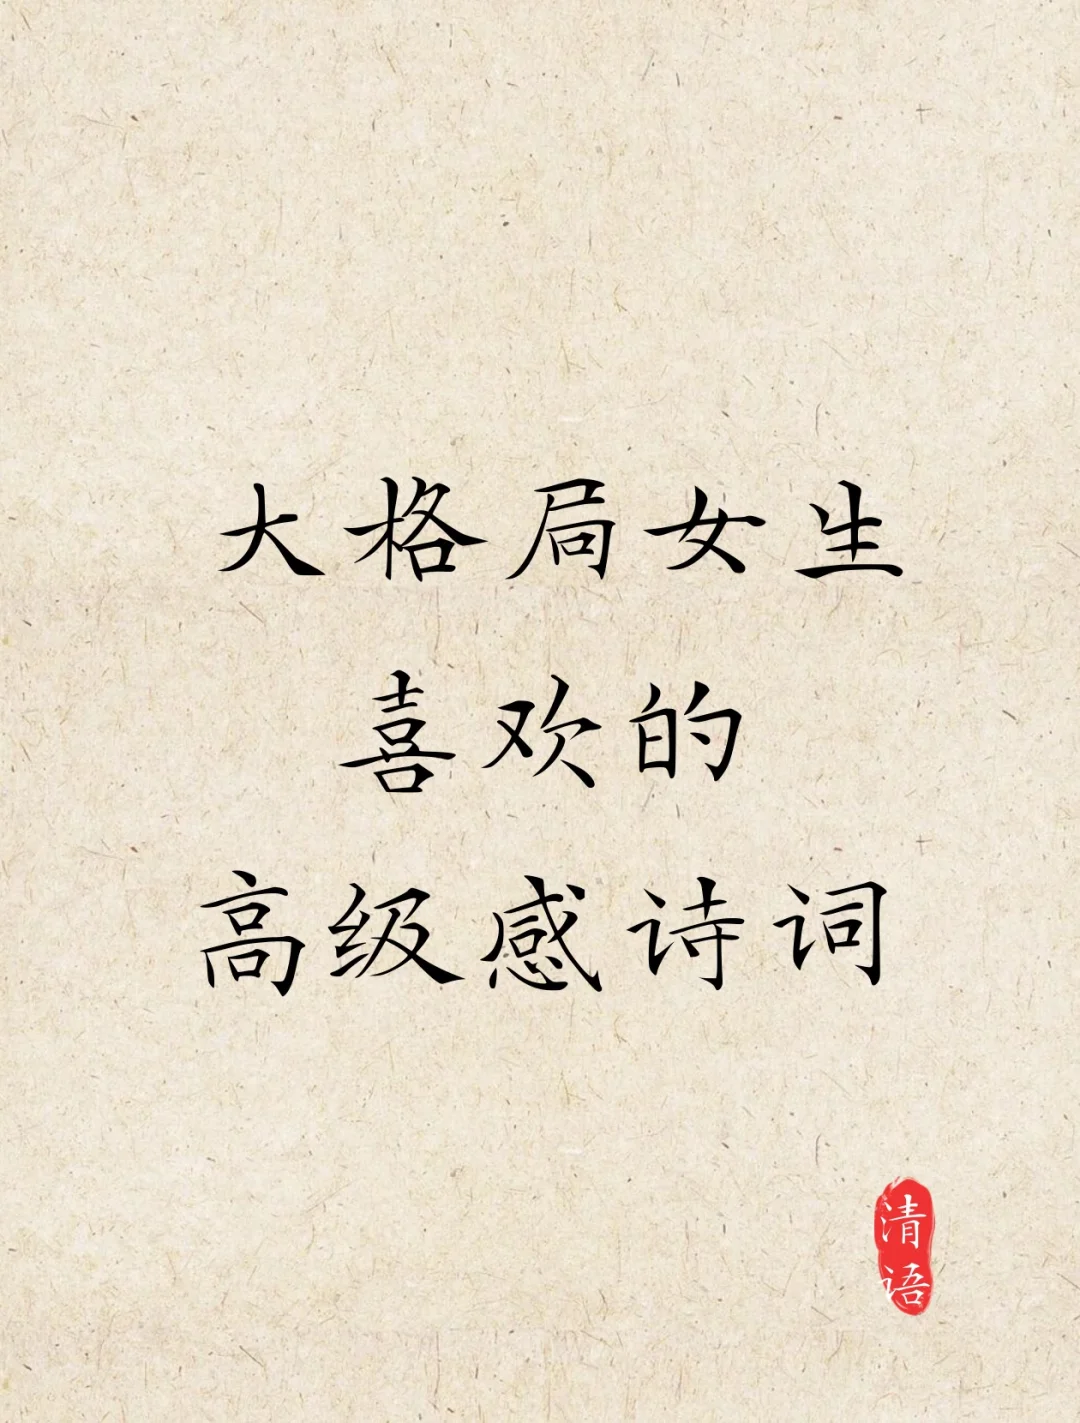 大格局女生
喜欢的
高级感诗词
清语